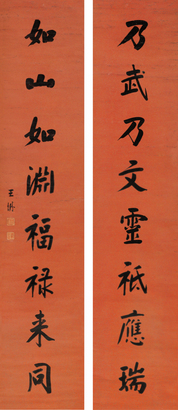 乃武乃文靈祇應瑞
如山如淵福祿来同